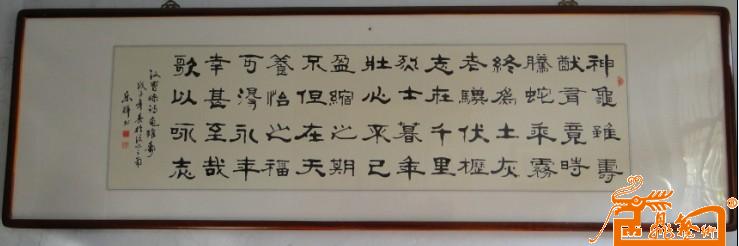 神龜雖壽
猷有竟時
騰蛇乘霧
終為土灰
老驥伏櫪
志在千里
烈士暮年
壯心不已
盈縮之期
不但在天
養怡之福
可得永年
幸甚至哉
歌以咏志